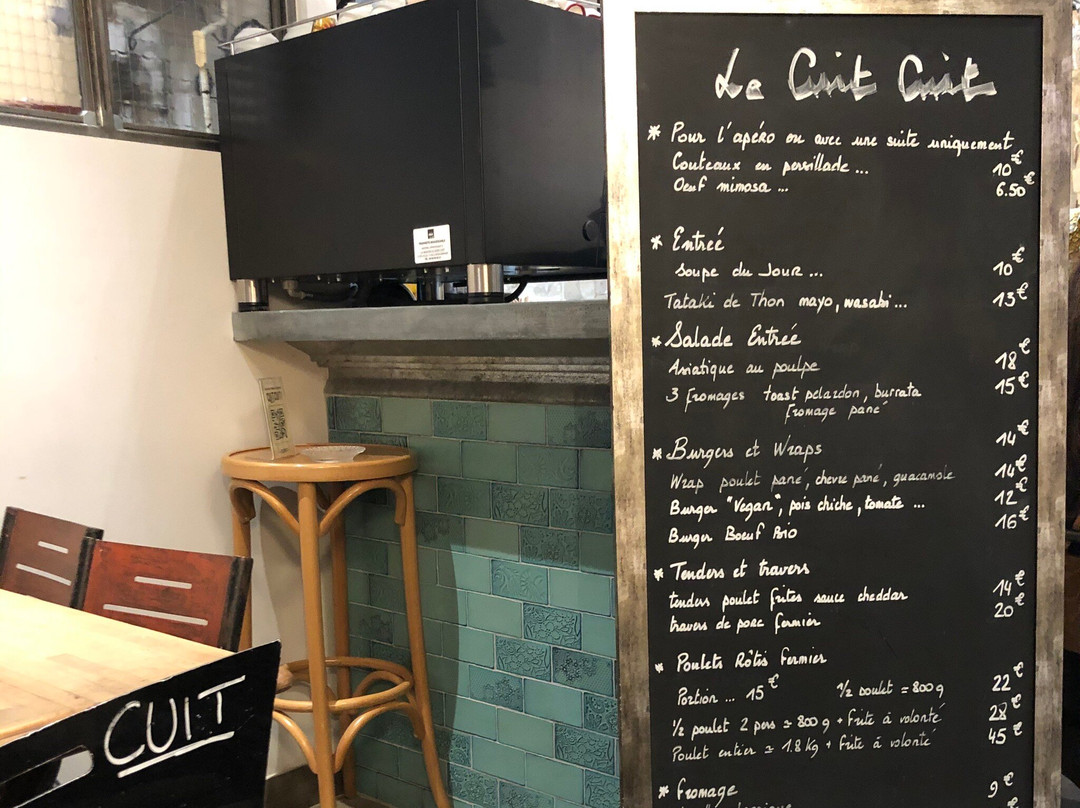 Le Cuit Cuit
* Pour l'apéro ou avec une suite uniquement
Couteaux en persillade ... 10€
Oeuf mimosa ... 6.50€
* Entreé
Soupe du Jour ... 10€
Tataki de Thon mayo, wasabi ... 13€
* Salade Entreé
Asiatique au poulpe 18€
3 fromages toast pelardon, burrata 15€
fromage pané
* Burgers et Wraps 14€
Wrap poulet pané, chevre pané, guacamole 14€
Burger "Vegan", pois chiche, tomate ... 12€
Burger Boeuf Bio 16€
* Tenders et travers
tenders poulet frites sauce cheddar 14€
travers de porc fermier 20€
* Poulets Rôtis fermier
Portion ... 15€ 1/2 poulet = 800g 22€
1/2 poulet 2 pers ≃ 800g + frite à volonté 28€
Poulet entier ≃ 1.8 Kg + frite à volonté 45€
* fromage 9€
CUIT